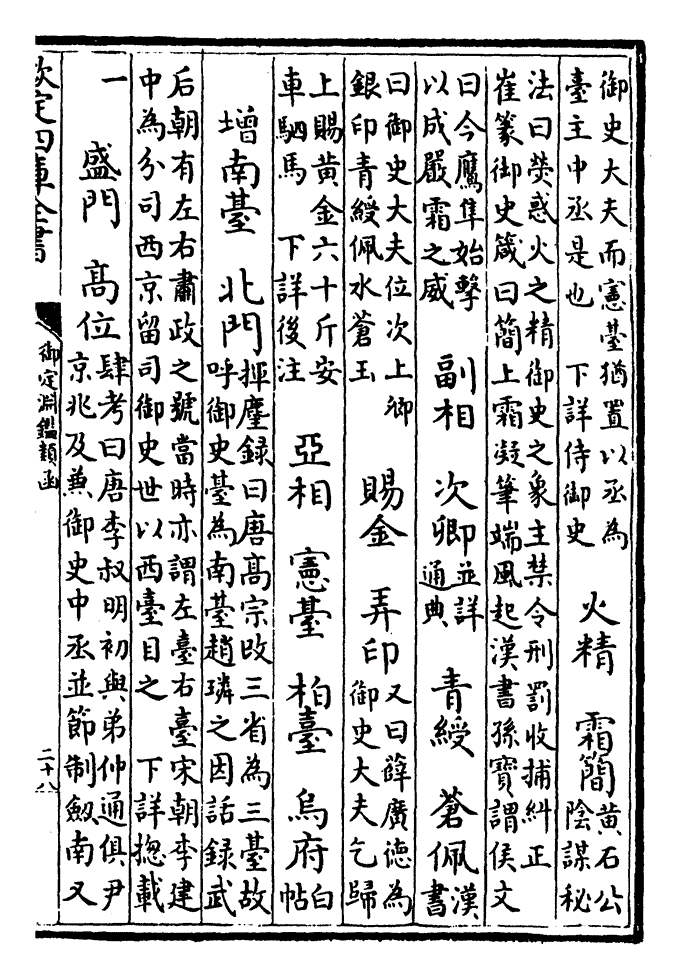 御史大夫而憲臺猶置以丞為
臺主中丞是也　下詳侍御史
火精　霜簡
黄石公
陰謀秘
法曰熒惑火之精御史之象主禁令刑罰收捕糾正
崔篆御史箴曰簡上霜凝筆端風起漢書孫寶謂侯文
曰今鷹隼始擊
以成嚴霜之威
副相　次卿
並詳
通典
青綬　蒼佩
漢
書
曰御史大夫位次上卿
銀印青綬佩水蒼玉
賜金　弄印
又曰薛廣德為
御史大夫乞歸
上賜黄金六十斤安
車駟馬　下詳後注
亞相　憲臺　柏臺　烏府
白
帖
增南臺　北門
揮麈録曰唐髙宗改三省為三臺故
呼御史臺為南臺趙璘之因話録武
后朝有左右肅政之號當時亦謂左臺右臺宋朝李建
中為分司西京留司御史世以西臺目之　下詳揔載
一　盛門　髙位
肆考曰唐李叔明初與弟仲通俱尹
京兆及兼御史中丞並節制劒南又
欽定四庫全書
御定淵鑑類函
二十八